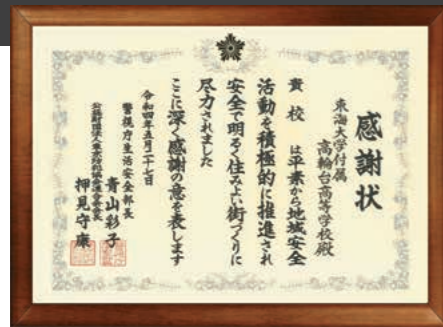 感謝状
東海大学付属
高輪台高等学校殿
貴校 は平素から地域安全
活動を積極的に推進され
安全で明るく住みよい街づくりに
尽力されました
ここに深く感謝の意を表します
令和四年五月二十七日
警視庁生活安全部長
青山彩子
押見守康